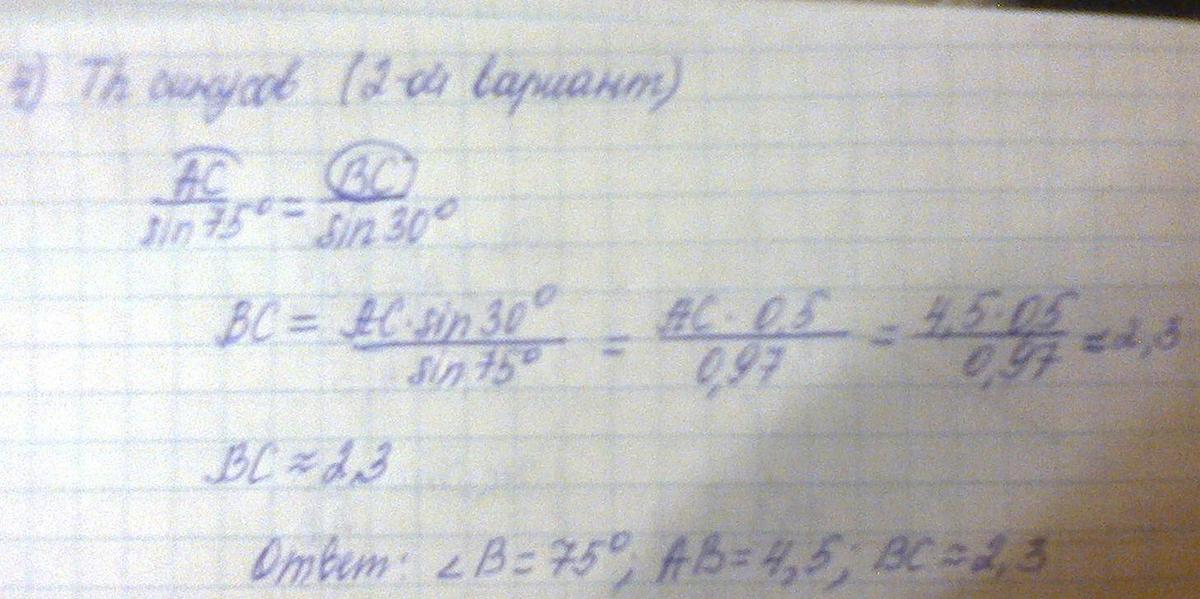 4) Th синусов (2-ой вариант)
AC/sin 75° = BC/sin 30°
BC = AC·sin 30°/sin 75° = AC · 0,5/0,97 = 4,5·0,5/0,97 ≈ 2,3
BC ≈ 2,3
Ответ: ∠B = 75°; AB = 4,5; BC ≈ 2,3